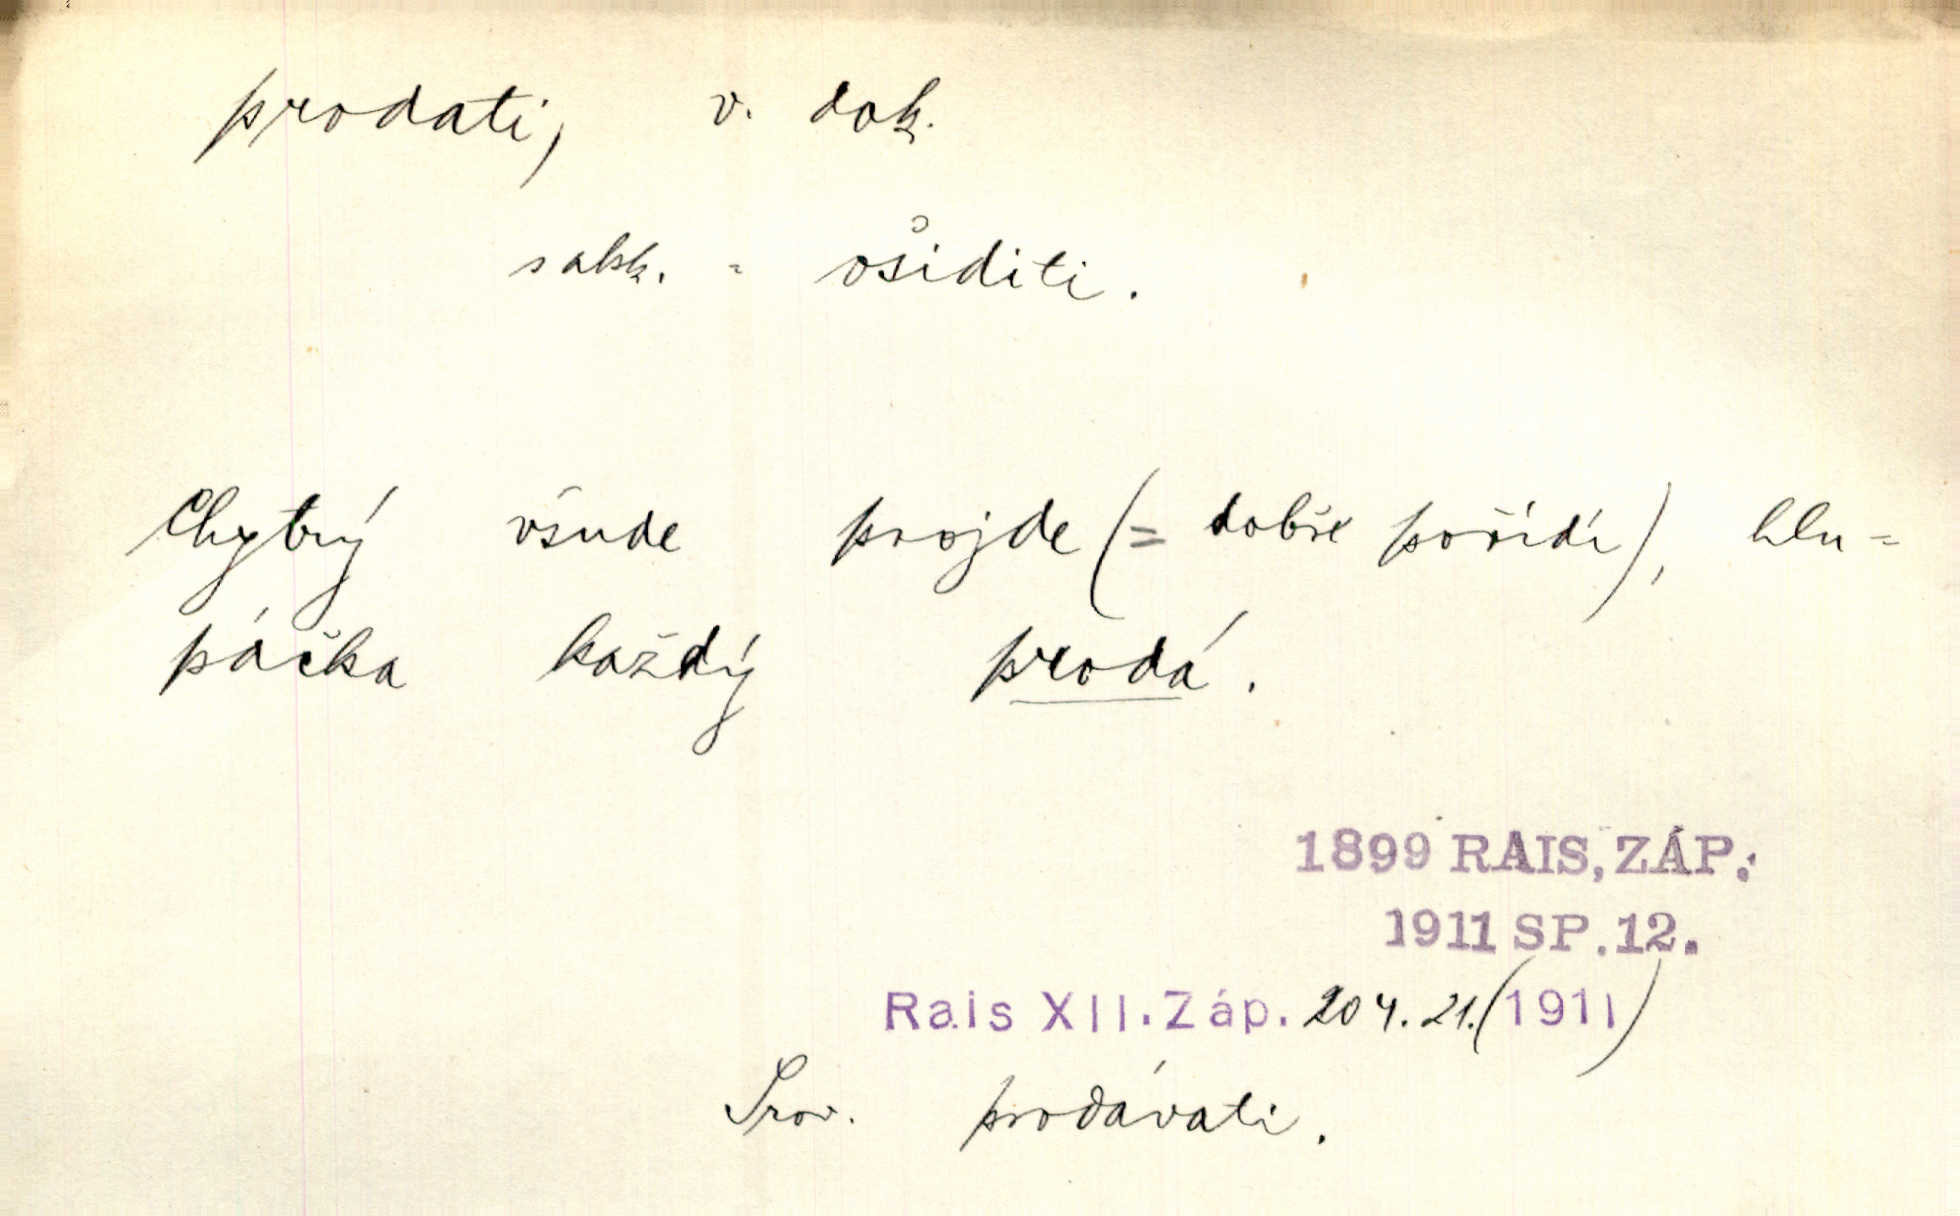 prodati, v. dok.
s akk. = ošiditi.
Chytrý všude projde (= dobře pořídí), hlu=
páčka každý prodá.
1899 RAIS, ZÁP.
1911 SP. 12.
Rais XII. Záp. 204. 21. (1911)
Srov. prodávati.